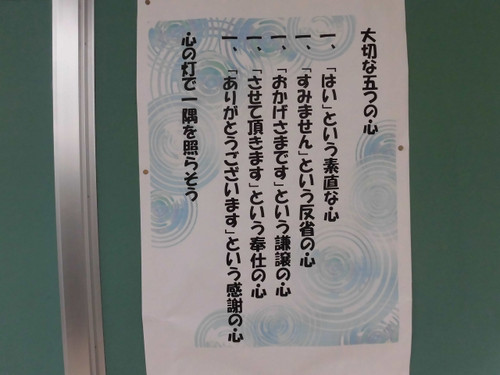 大切な五つの心
一、「はい」という素直な心
一、「すみません」という反省の心
一、「おかげさまです」という謙譲の心
一、「させて頂きます」という奉仕の心
一、「ありがとうございます」という感謝の心
心の灯で一隅を照らそう